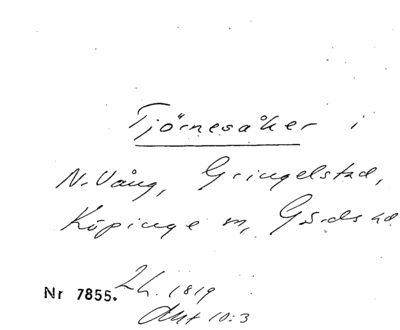 Tjörnesåker i
N. Vång, Gringelstad,
Köpinge m, Gärds hd
Nr 7855. 2 h. 1819
Akt 10:3